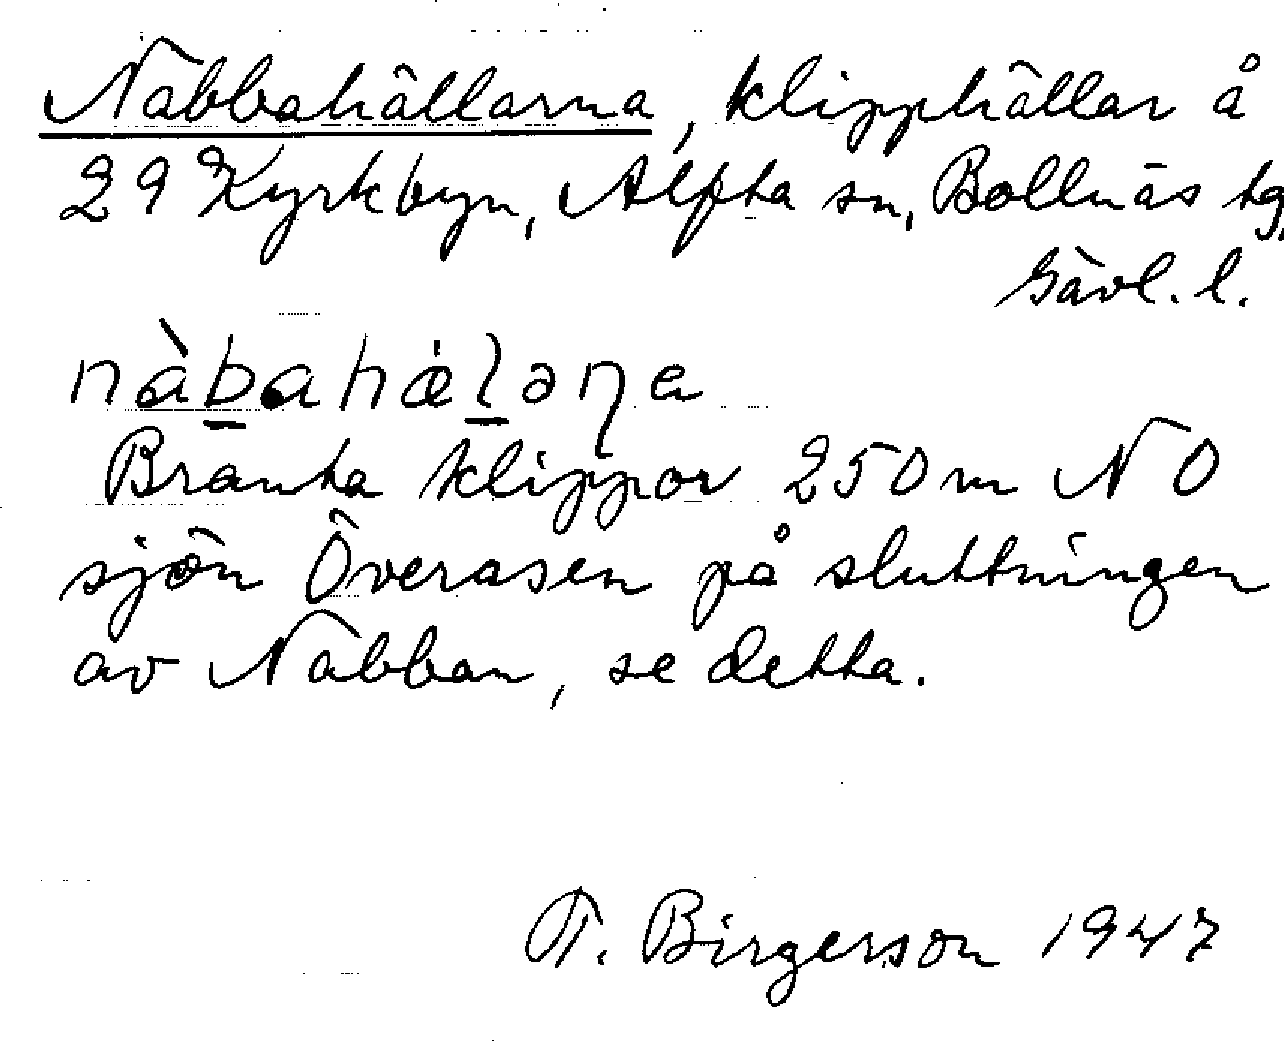 Nabbahällarna, klipphällar å
29 Kyrkbyn, Alfta sn, Bollnäs tg,
Gävl. l.
nàb̲ahæ̀l̲əɳa
Branta klippor 250 m NO
sjön Överasen på sluttningen
av Nabban, se detta.
T. Birgerson 1947